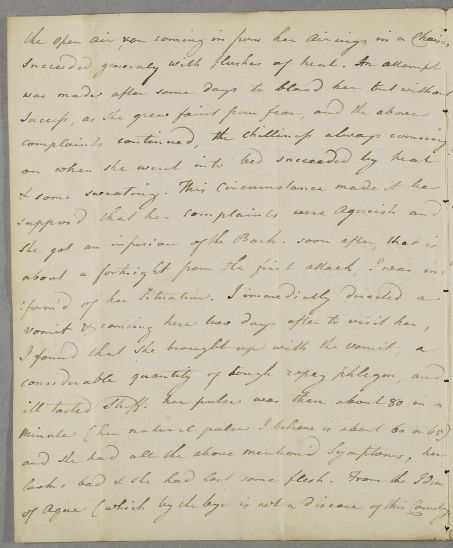 the open air, & on coming in from her airings in a Chaise,
succeeded generaly with flushes of heat. An attempt
was made after some days to blood her but without
success, as she grew faint from fear, and the above
complaints continued, the chilliness always coming
on when she went into bed succeeded by heat
& some sweating. This Circumstance made it be
suppos'd that her complaints were Agueish and
she got an infusion of the Bark. soon after, that is
about a fortnight from the first attack, I was in
form'd of her Situation. I immediatly directed a
vomit & coming here two days after to visit her,
I found that she brought up with the vomit, a
considerable quantity of tough ropey phlegm, and
ill tasted Stuff. her pulse was then about 80 in a
Minute (her natural pulse I believe is about 60 or 65)
and she had all the above mentiond Symptoms, her
looks bad & she had lost some flesh. From the Idea
of Ague (which by the bye is not a disease of this County